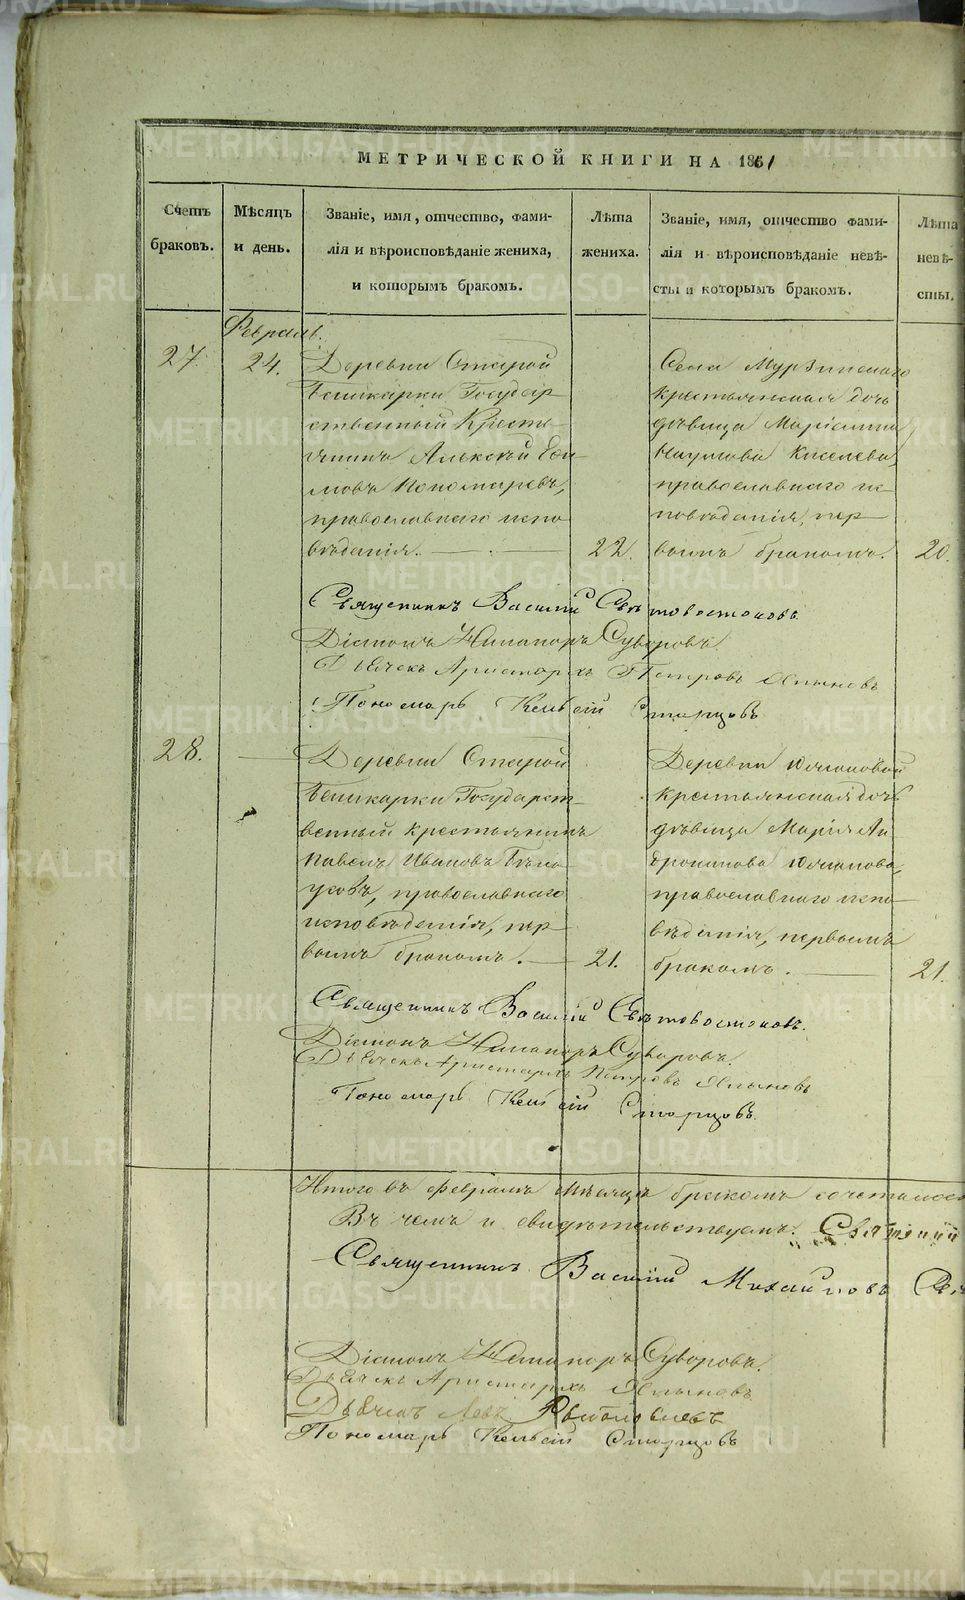 МЕТРИЧЕСКОЙ КНИГИ НА 1861
Счетъ браковъ.
Мѣсяцъ и день.
Званіе, имя, отчество, фами-
лія и вѣроисповѣданіе жениха,
и которымъ бракомъ.
Лѣта жениха.
Званіе, имя, отчество фами-
лія и вѣроисповѣданіе невѣ-
сты и которымъ бракомъ.
Лѣта невѣ-
сты.
Февраль.
27.
24.
Деревни Старой
Государ
ственный Кресть
янинъ Алексѣй Ефи
мовъ Пономаревъ,
православнаго испо
вѣданія.
22.
Села Мурзинскаго
крестьянская дочь
дѣвица
Наумова Киселева,
православнаго ис
повѣданія, пер
вымъ бракомъ.
20.
Священникъ Василій Свѣтовостоковъ.
Діаконъ Никаноръ Суворовъ.
Дьячекъ Аристархъ Петровъ
Пономарь Старцовъ
28.
Деревни Старой
Государст
венный крестьянинъ
Павелъ Ивановъ Бѣло
усовъ, православнаго
исповѣданія, пер
вымъ бракомъ.
21.
Деревни
крестьянская дочь
дѣвица Марія Ан
дроникова
православнаго испо
вѣданія, первымъ
бракомъ.
21.
Священникъ Василій Свѣтовостоковъ.
Діаконъ Никаноръ Суворовъ.
Дьячекъ Аристархъ Петровъ
Пономарь Старцовъ.
Итого въ Февралѣ мѣсяцѣ бракомъ сочеталось
Въ чемъ и свидѣтельствуемъ.
Священникъ Василій Михайловъ
Діаконъ Никаноръ Суворовъ.
Дьячекъ Аристархъ
Дьячекъ Левъ
Пономарь Старцовъ
METRIKI.GASO-URAL.RU